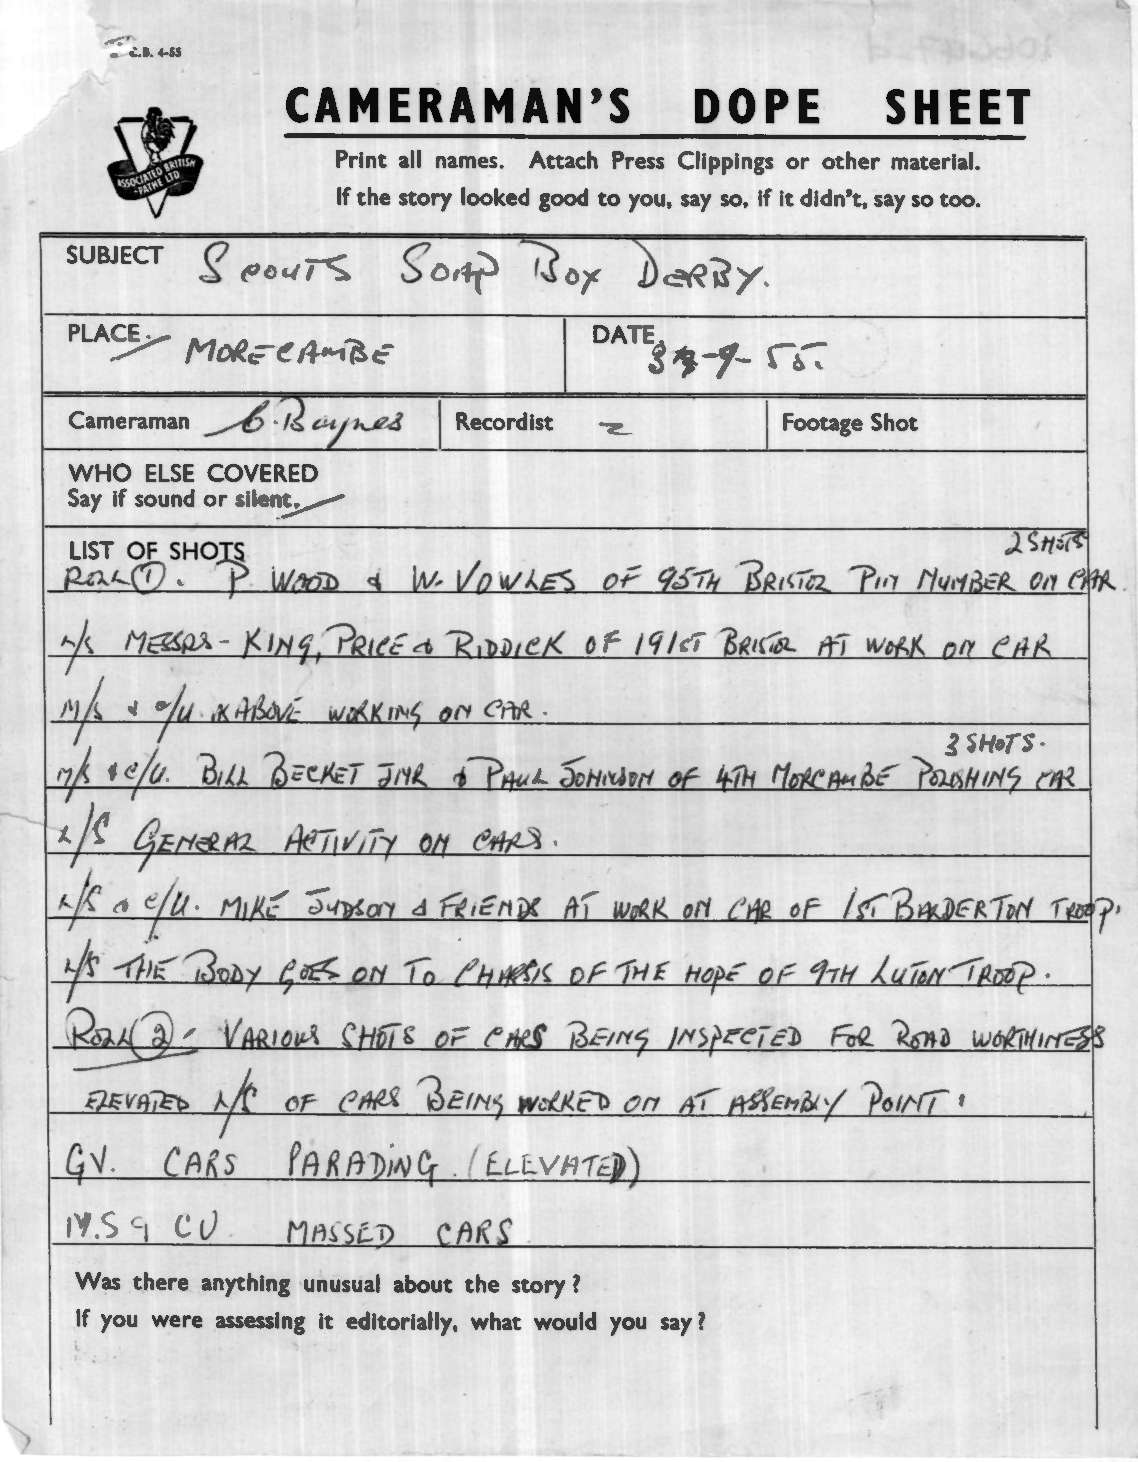 C.D. 4-55
CAMERAMAN'S DOPE SHEET
ASSOCIATED BRITISH
-PATHE LTD
Print all names. Attach Press Clippings or other material.
If the story looked good to you, say so, if it didn't, say so too.
SUBJECT SCOUTS SOAP BOX DERBY.
PLACE. MORECAMBE
DATE. -9-55.
Cameraman C. Baynes Recordist Footage Shot
WHO ELSE COVERED
Say if sound or silent.
LIST OF SHOTS 2 SHOTS
ROLL 1. P WOOD & W. VOWLES OF 95TH BRISTOL PIN NUMBER ON CAR.
L/S MESSRS - KING, PRICE & RIDDICK OF 191ST BRISTOL AT WORK ON CAR
M/S & C/U. ABOVE WORKING ON CAR.
3 SHOTS.
M/S & C/U. BILL BECKET JNR & PAUL JOHNSON OF 4TH MORCAMBE POLISHING CAR
L/S GENERAL ACTIVITY ON CARS.
L/S & C/U. MIKE JUDSON & FRIENDS AT WORK ON CAR OF 1ST BALDERTON TROOP.
L/S THE BODY GOES ON TO CHASSIS OF THE HOPE OF 9TH LUTON TROOP.
ROLL 2 - VARIOUS SHOTS OF CARS BEING INSPECTED FOR ROAD WORTHINESS
ELEVATED L/S OF CARS BEING WORKED ON AT ASSEMBLY POINT.
GV. CARS PARADING. (ELEVATED)
M.S & CU. MASSED CARS
Was there anything unusual about the story?
If you were assessing it editorially, what would you say?